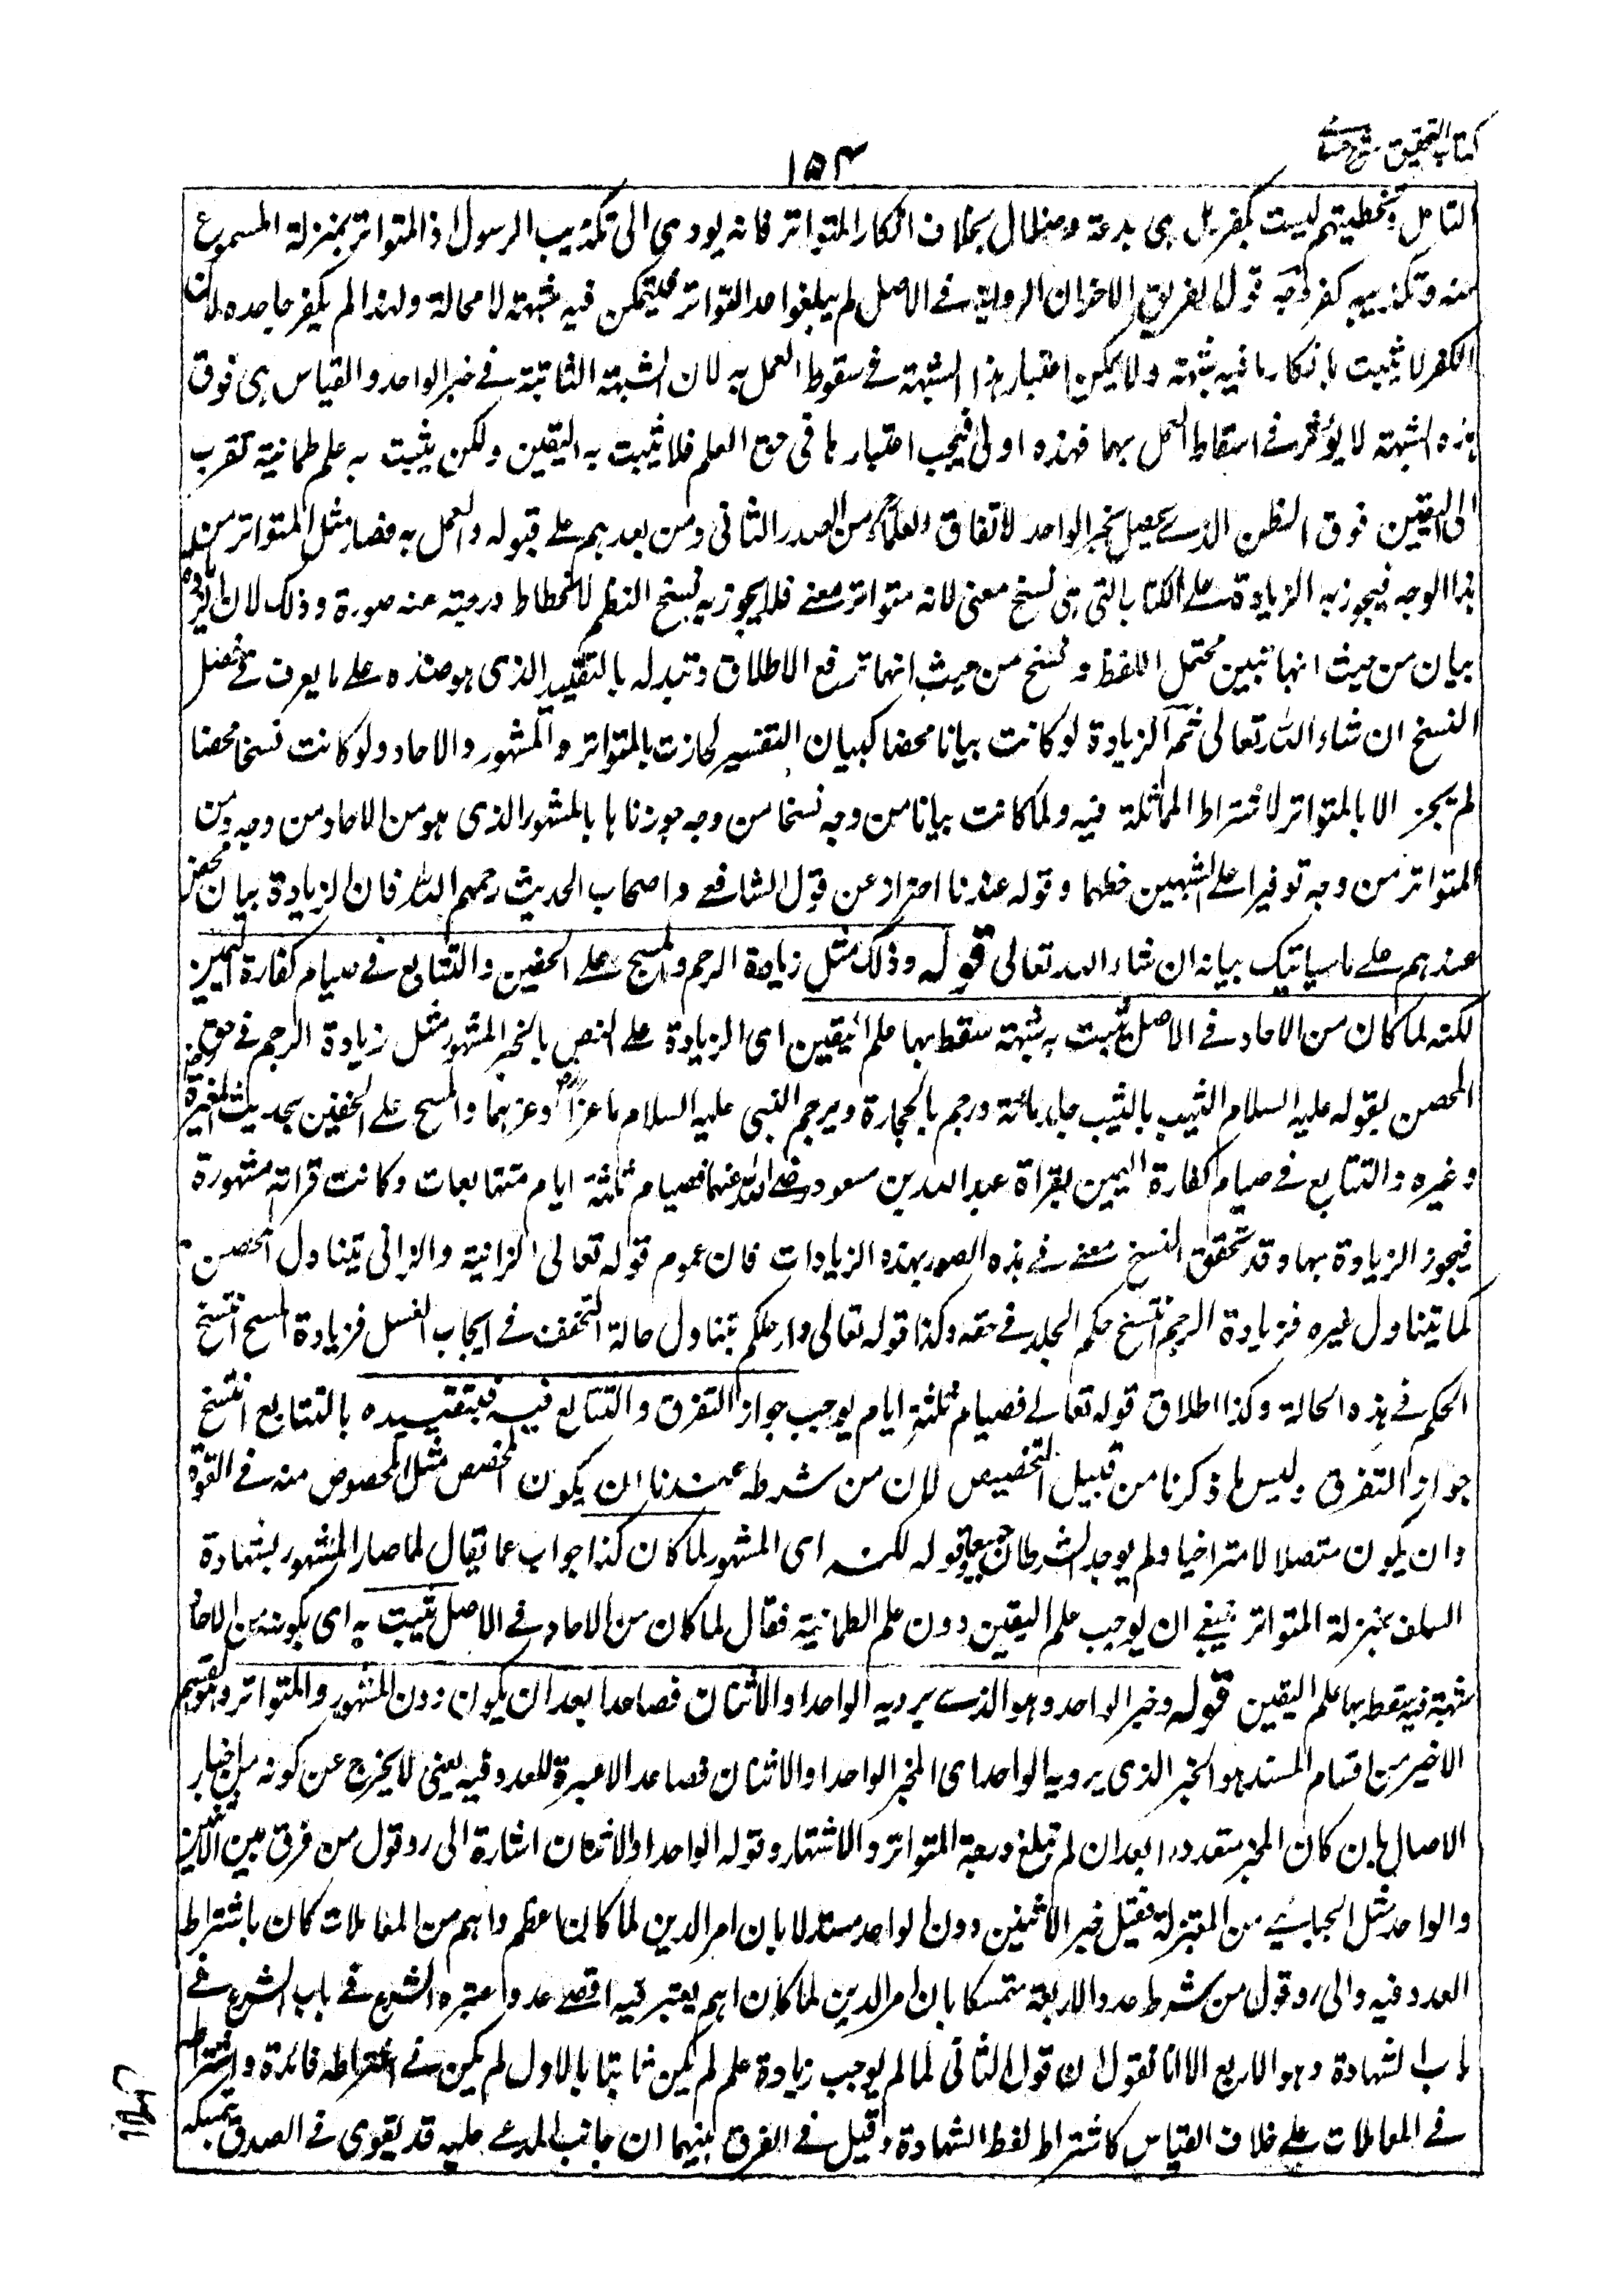 كتاب التحقيق شرح حسامي
١٥٤
التامل وتخطيتهم ليست بكفر بل هي بدعة وضلال بخلاف انكار المتواتر فانه يودي الى تكذيب الرسول اذ المتواتر بمنزلة المسموع
منه وتكذيبه كفر وجه قول الفريق الاخر ان الرواية في الاصل لم يبلغوا حد التواتر فيتمكن فيه شبهة لا محالة ولهذا لم يكفر جاحده لان
الكفر لا يثبت بانكار ما فيه شبهة ولا يمكن اعتبار هذا الشبهة في سقوط العمل به لان الشبهة الثابتة في خبر الواحد والقياس هي فوق
هذه الشبهة لا يؤثر في اسقاط العمل بهما فهذه اولى فيجب اعتبارها في حق العلم فلا يثبت به اليقين ولكن يثبت به علم طمانية تقرب
الى اليقين فوق الظن الذي يحصل بخبر الواحد لاتفاق العلماء من الصدر الثاني ومن بعدهم على قبوله والعمل به فصار مثل المتواتر من
هذا الوجه فيجوز به الزيادة على الكتاب التي هي نسخ معنى لانه متواتر معنى فلا يجوز به نسخ النظم لانحطاط درجته عنه صورة وذلك لان الزيادة
بيان من حيث انها تبين محتمل اللفظ ونسخ من حيث انها ترفع الاطلاق وتبدله بالتقييد الذي هو ضده على ما يعرف في فصل
النسخ ان شاء الله تعالى ثم الزيادة لو كانت بيانا محضا كبيان التفسير لجازت بالمتواتر والمشهور والاحاد ولو كانت نسخا محضا
لم يجز الا بالمتواتر لاشتراط المماثلة فيه ولما كانت بيانا من وجه نسخا من وجه جوزناها بالمشهور الذي هو من الاحاد من وجه ومن
المتواتر من وجه توفيرا على الشبهين حظهما وقوله عندنا احتراز عن قول الشافعي واصحاب الحديث رحمهم الله فان الزيادة بيان محض
عندهم على ما سياتيك بيانه ان شاء الله تعالى قوله وذلك مثل زيادة الرجم والمسح على الخفين والتتابع في صيام كفارة اليمين
لكنه لما كان من الاحاد في الاصل ثبت به شبهة سقط بها علم اليقين اى الزيادة على النص بالخبر المشهور مثل زيادة الرجم في حق
المحصن بقوله عليه السلام الثيب بالثيب جلد مائة ورجم بالحجارة وبرجم النبي عليه السلام ماعزا وغيرهما والمسح على الخفين بحديث المغيرة
وغيره والتتابع في صيام كفارة اليمين بقراة عبد الله بن مسعود رضي الله عنهما فصيام ثلثة ايام متتابعات وكانت قراته مشهورة
فيجوز الزيادة بها وقد تحقق النسخ معنى في هذه الصور بهذه الزيادات فان عموم قوله تعالى الزانية والزاني يتناول المحصن
كما يتناول غيره فزيادة الرجم انتسخ حكم الجلد في حقه وكذا قوله تعالى وارجلكم يتناول حالة التخفف في ايجاب الغسل فزيادة المسح انتسخ
الحكم في هذه الحالة وكذا اطلاق قوله تعالى فصيام ثلثة ايام يوجب جواز التفرق والتتابع فيه فبتقييده بالتتابع انتسخ
جواز التفرق وليس ما ذكرنا من قبيل التخصيص لان من شرطه عندنا ان يكون المخصص مثل المخصوص منه في القوة
وان يكون متصلا لا متراخيا ولم يوجد الشرطان جميعا وقوله لكنه اى المشهور لما كان كذا جواب عما يقال لما صار المشهور بشهادة
السلف بمنزلة المتواتر ينبغي ان يوجب علم اليقين دون علم الطمانية فقال لما كان من الاحاد في الاصل يثبت به اى بكونه من الاحاد
شبهة فيسقط بها علم اليقين قوله وخبر الواحد وهو الذي يرويه الواحد او الاثنان فصاعدا بعد ان يكون دون المشهور والمتواتر وهو القسم
الاخير من اقسام المسند هو الخبر الذي يرويه الواحد اى المخبر الواحد او الاثنان فصاعدا لا عبرة للعدد فيه يعني لا يخرج عن كونه من اخبار
الاحاد بان كان المخبر متعددا بعد ان لم تبلغ درجة المتواتر والاشتهار وقوله الواحد او الاثنان اشارة الى رد قول من فرق بين الاثنين
والواحد مثل الجبائي من المعتزلة فقبل خبر الاثنين دون الواحد مستدلا بان امر الدين لما كان اعظم واهم من المعاملات كان باشتراط
العدد فيه والى رد قول من شرط عدد الاربعة متمسكا بان امر الدين لما كان اهم يعتبر فيه اقصى عدد اعتبره الشرع في باب الشرع في
باب الشهادة وهو الاربع الا انا نقول ان قول الثاني لما لم يوجب زيادة علم لم يكن ثابتا بالاول لم يكن في اشتراطه فائدة واشتراطه
في المعاملات على خلاف القياس كاشتراط لفظ الشهادة وقيل في الفرق بينهما ان جانب المدعى عليه قد يقوى في الصدق بتمسكه